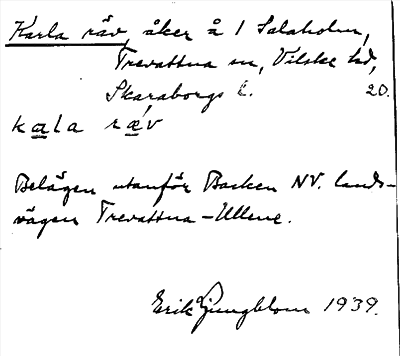 Karla räv, åker å 1 Salaholm,
Trevattna sn, Vilske hd,
Skaraborgs l. 20.
kala räv
Belägen utanför Backen NV. lands-
vägen Trevattna - Ullene.
Erik Ljungblom 1939.